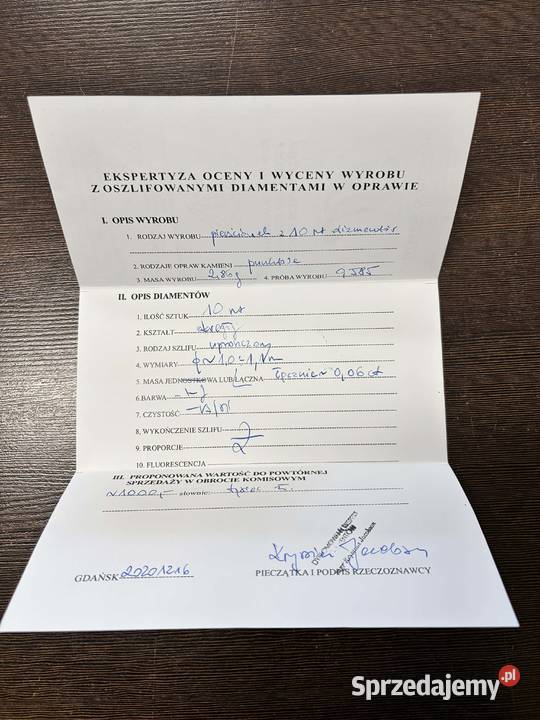 EKSPERTYZA OCENY I WYCENY WYROBU
Z OSZLIFOWANYMI DIAMENTAMI W OPRAWIE
I. OPIS WYROBU
1. RODZAJ WYROBU pierścionek z 10 szt diamentów
2. RODZAJE OPRAW KAMIENI
3. MASA WYROBU 2,86g 4. PRÓBA WYROBU 0,585
II. OPIS DIAMENTÓW
1. ILOŚĆ SZTUK 10 szt
2. KSZTAŁT okrągły
3. RODZAJ SZLIFU uproszczony
4. WYMIARY ϕ ~ 1,0-1,1mm
5. MASA JEDNOSTKOWA LUB ŁĄCZNA Łącznie ~ 0,06 ct
6. BARWA
7. CZYSTOŚĆ
8. WYKOŃCZENIE SZLIFU
9. PROPORCJE
10. FLUORESCENCJA
III. PROPONOWANA WARTOŚĆ DO POWTÓRNEJ
SPRZEDAŻY W OBROCIE KOMISOWYM
~1000,- słownie:
GDAŃSK 20201216
PIECZĄTKA I PODPIS RZECZOZNAWCY
Sprzedajemy.pl